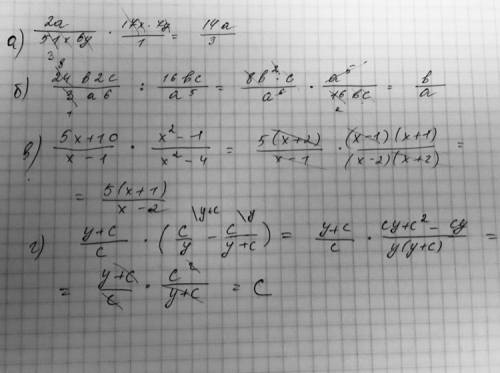 а) 2a / 51x6y · 17x·7y / 1 = 14a / 3
б) 24 b2c / 3 a6 : 16bc / a5 = 8b2·c / a6 · a5 / 16bc = b / a
в) 5x+10 / x-1 · x2-1 / x2-4 = 5(x+2) / x-1 · (x-1)(x+1) / (x-2)(x+2) =
= 5(x+1) / x-2
г) y+c / c · ( c / y \y+c - c / y+c \y ) = y+c / c · cy+c2-cy / y(y+c) =
= y+c / c · c2 / y+c = c